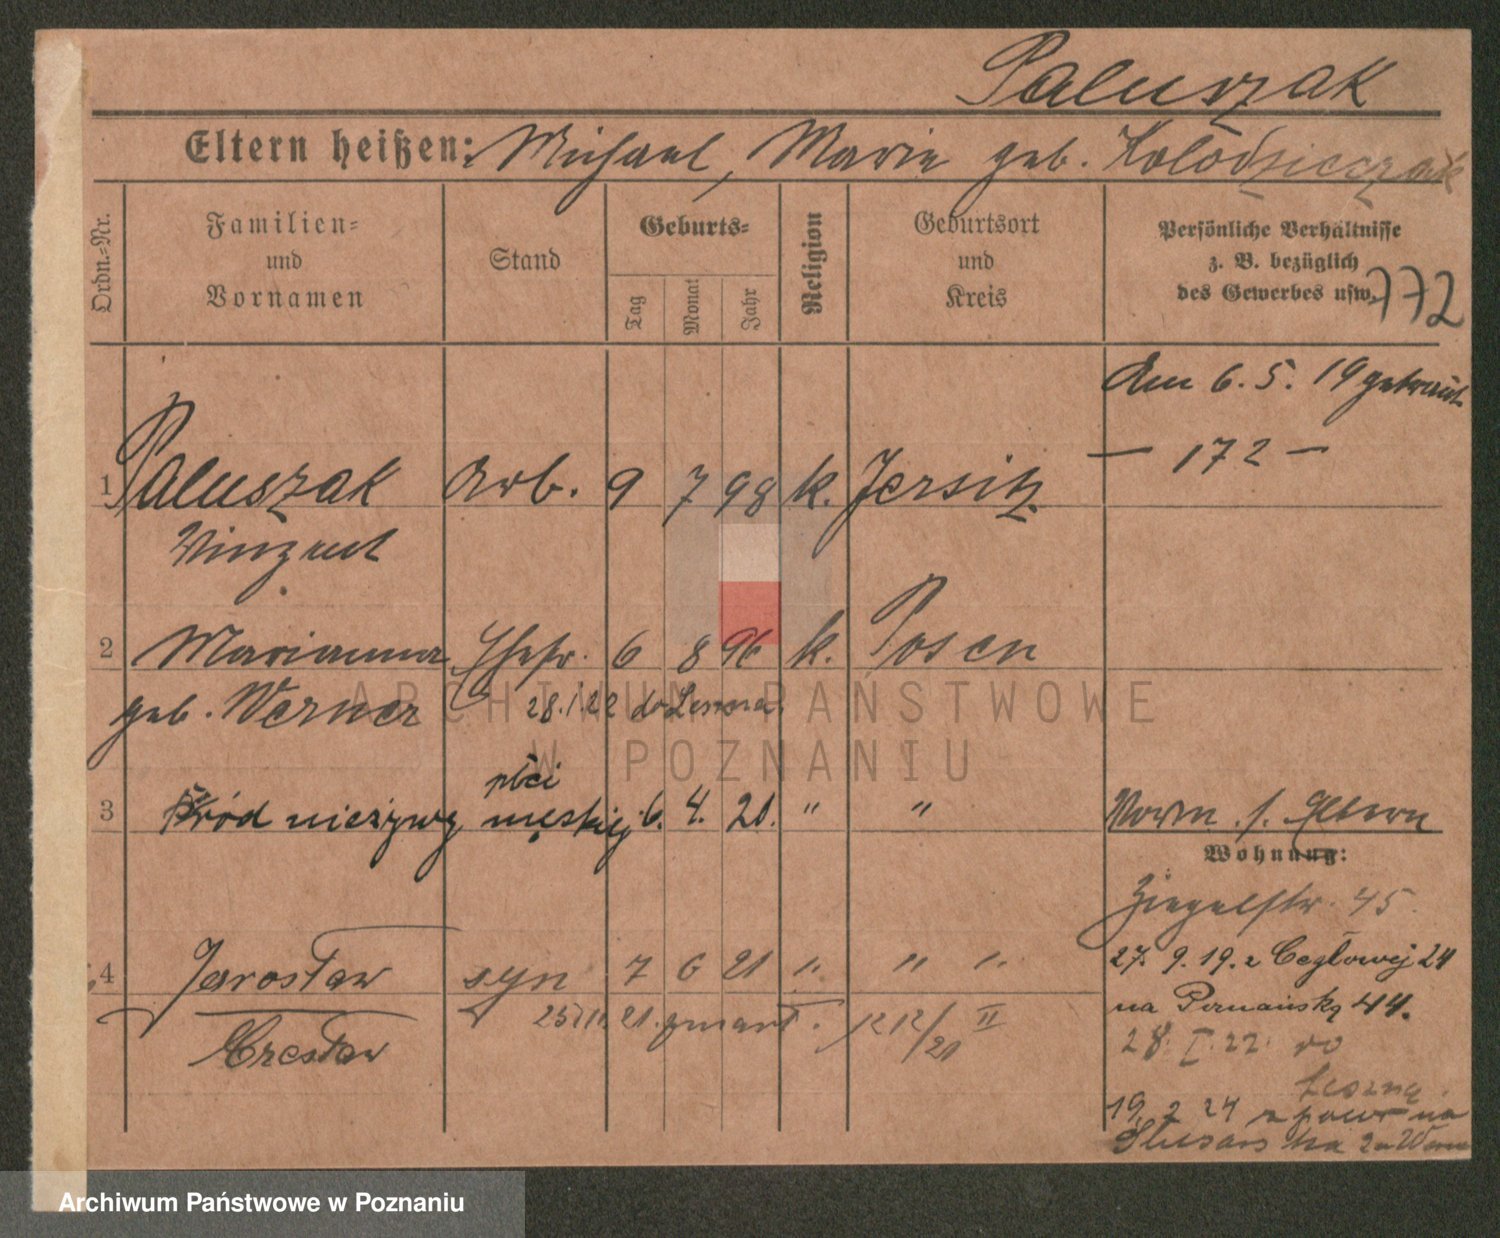 Paluszak
Eltern heißen: Michael, Marie geb. Kolodzieczak
Ordn.-Nr.
Familien-
und
Vornamen
Stand
Geburts-
Tag
Monat
Jahr
Religion
Geburtsort
und
Kreis
Persönliche Verhältnisse
z. B. bezüglich
des Gewerbes usw.
772
Am 6. 5. 19 getraut
— 172 —
1 Paluszak Arb. 9 7 98 k. Jersitz
Vinzent
2 Marianna Ehefr. 6 8 96 k. Posen
geb. Werner 28.1.22 do Leszna
płci
3 Płód nieżywy męskiej 6. 4. 20. " " Vorm. s. Eltern
Wohnung:
Ziegelstr. 45
4 Jarosław syn 7 6 21 " " "
27. 9. 19. z Ceglowej 24
na Poznańską 44.
Czesław 21. zmarł. 1212/21 II
28. I. 22. do
Leszna
19. 2 24 z powr na
ARCHIWUM PAŃSTWOWE
W POZNANIU
Archiwum Państwowe w Poznaniu